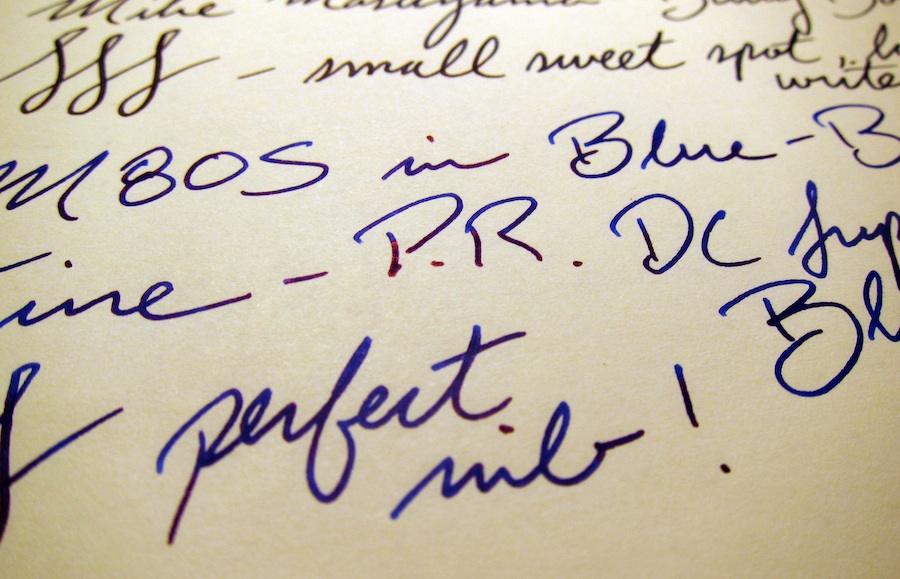 Mike Masuyama
fff - small sweet spot
write
M805 in Blue-B
Fine - P.R. DC Sup
Bl
perfect
nib!